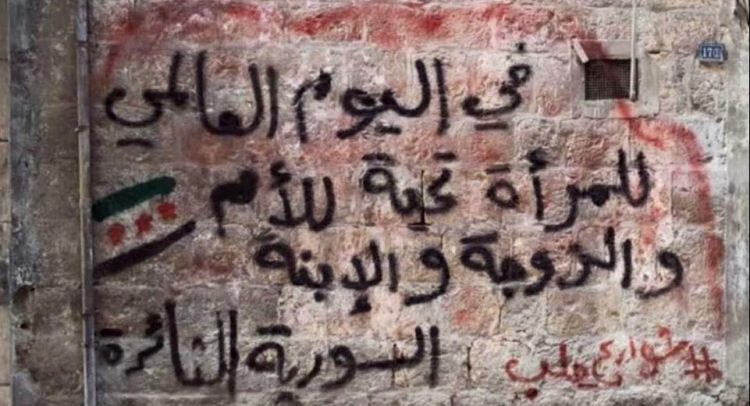 في اليوم العالمي
للمرأة تحية للأم
والزوجة والإبنة
السورية الثائرة
#شوارع_حلب
173